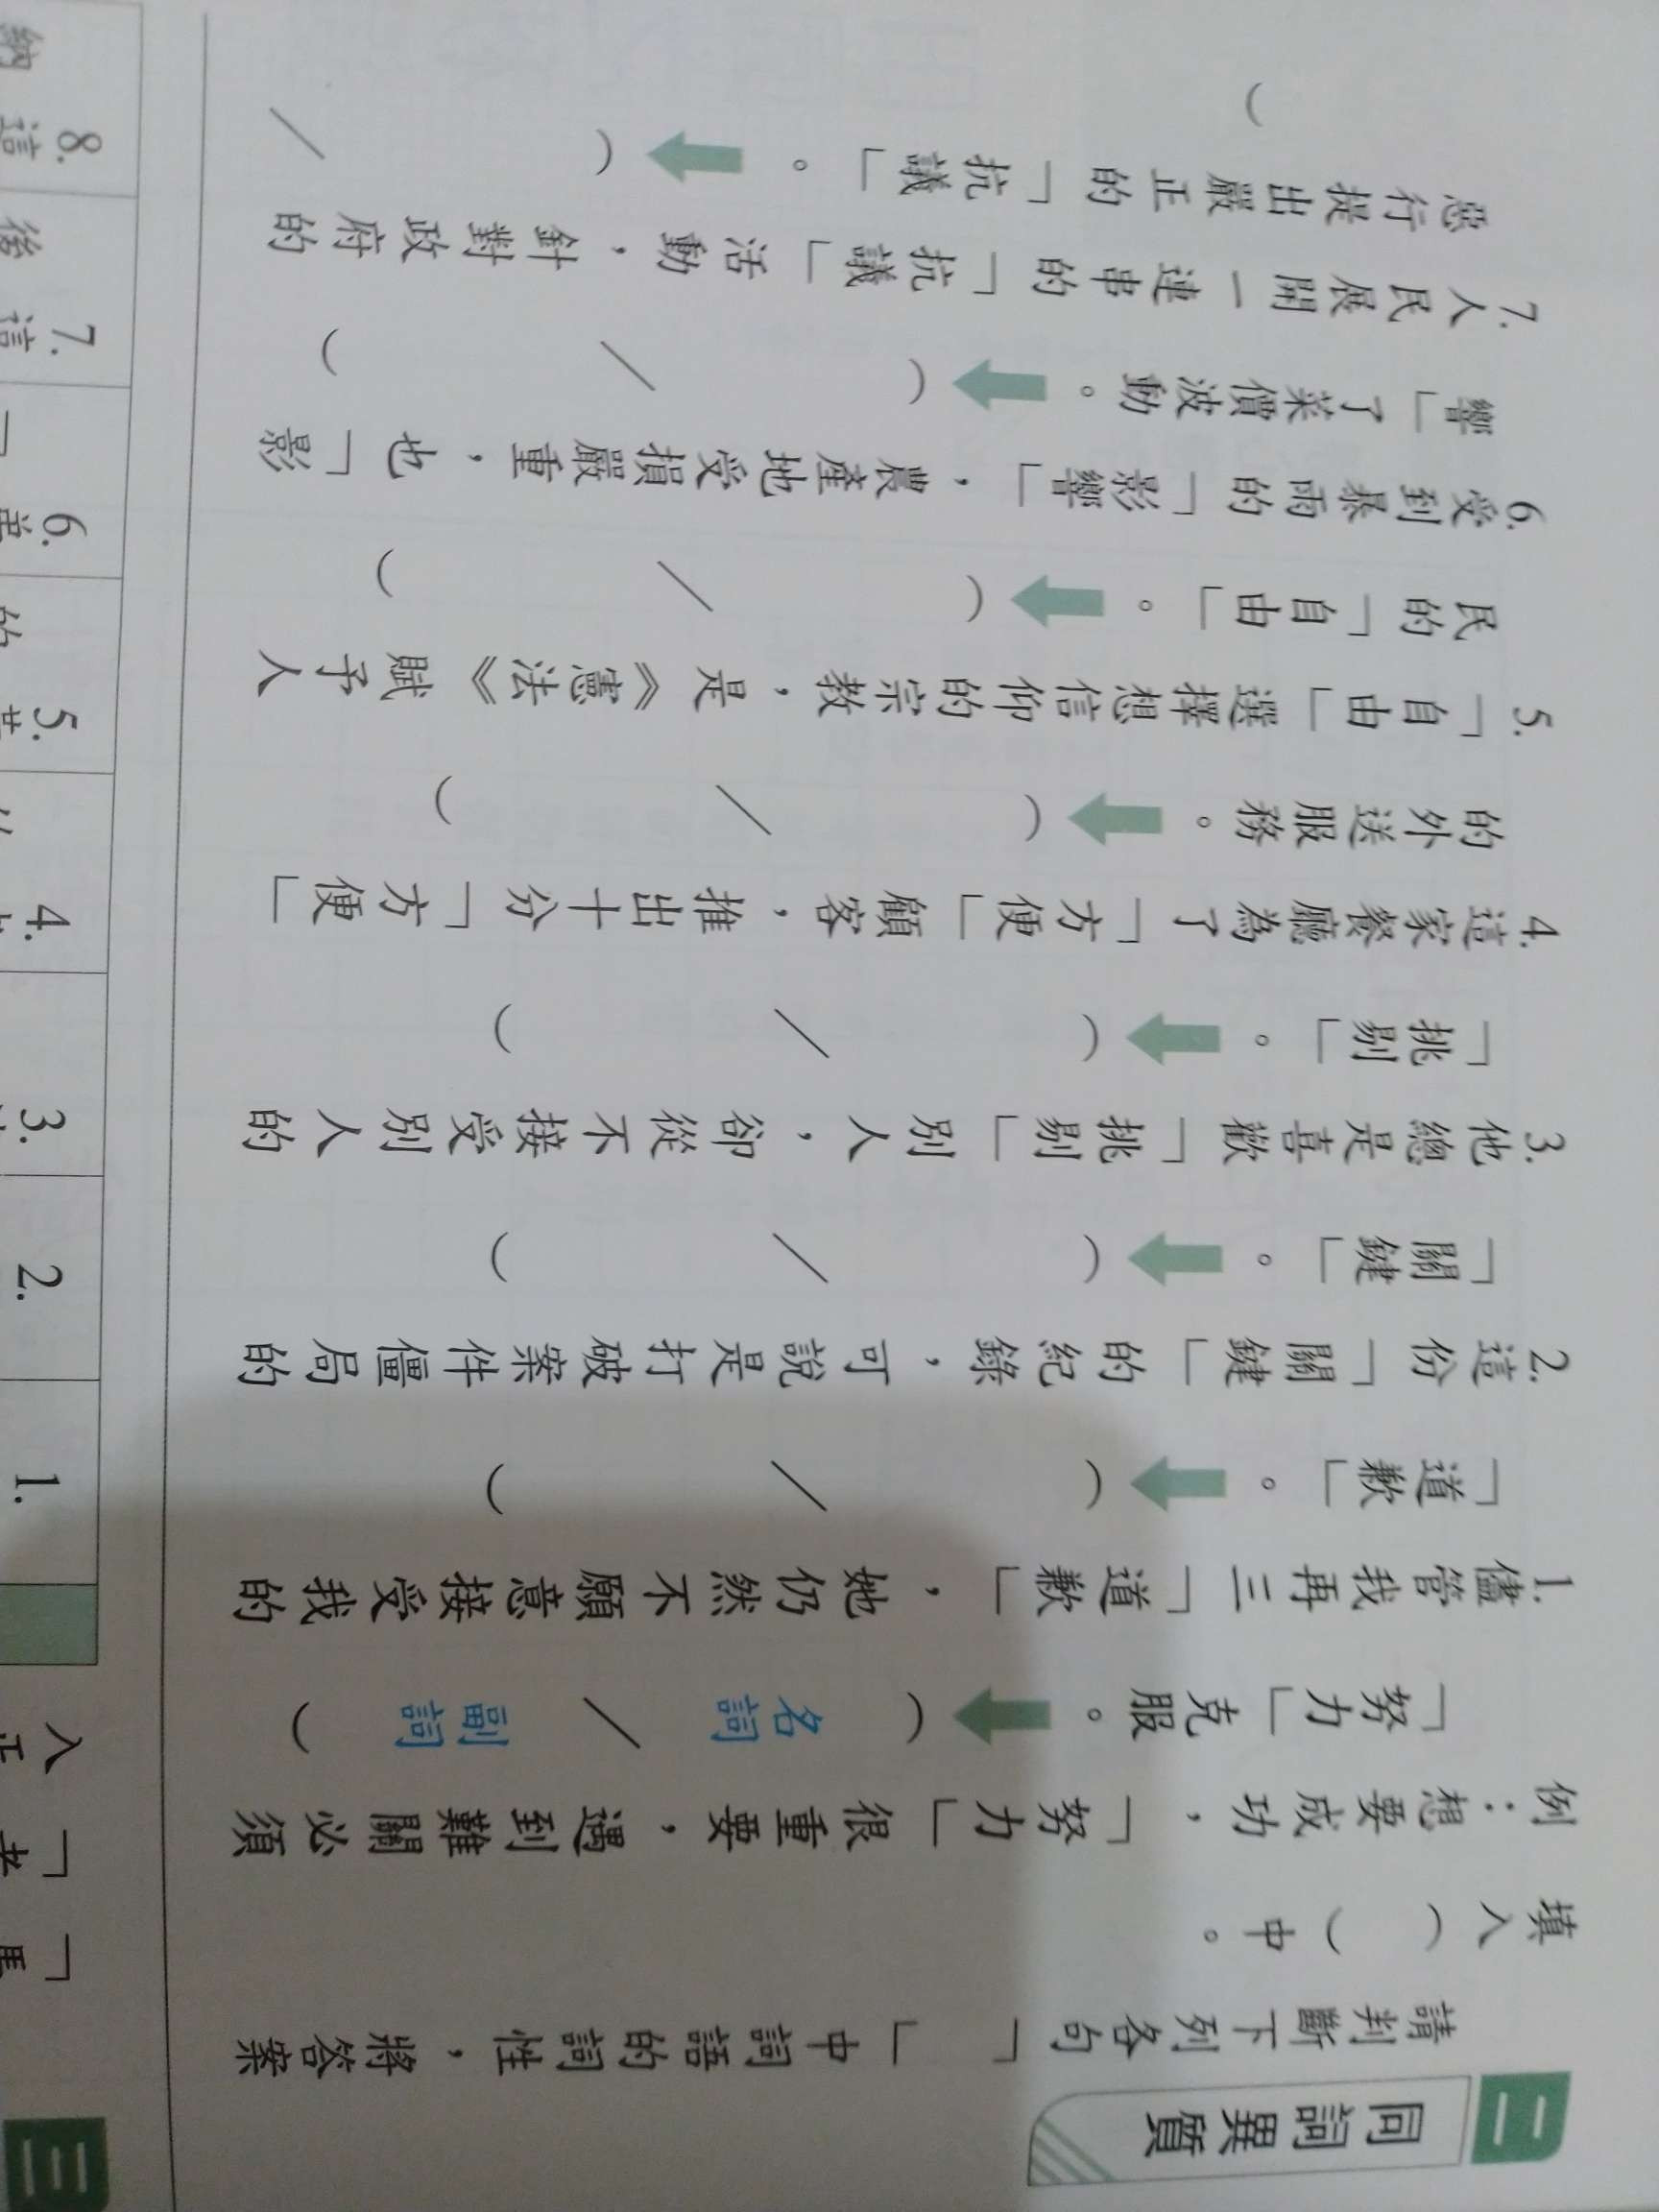 二
同詞異質
請判斷下列各句「　」中詞語的詞性，將答案
填入（　）中。
例：想要成功，「努力」很重要，遇到難關必須
「努力」克服。（名詞／副詞）
1.儘管我再三「道歉」，她仍然不願意接受我的
「道歉」。（　／　）
2.這份「關鍵」的紀錄，可說是打破案件僵局的
「關鍵」。（　／　）
3.他總是喜歡「挑剔」別人，卻從不接受別人的
「挑剔」。（　／　）
4.這家餐廳為了「方便」顧客，推出十分「方便」
的外送服務。（　／　）
5.「自由」選擇想信仰的宗教，是《憲法》賦予人
民的「自由」。（　／　）
6.受到暴雨的「影響」，農產地受損嚴重，也「影
響」了菜價波動。（　／　）
7.人民展開一連串的「抗議」活動，針對政府的
惡行提出嚴正的「抗議」。（　／
）
三
1.
2.
3.
4.
5.
6.
7.
8.